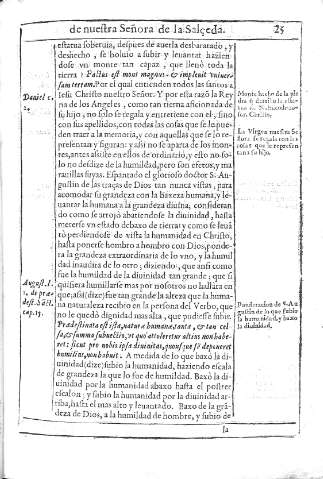 de nuestra Señora de la Salçeda. 25
estatua soberuia, despues de auerla desbaratado, y
deshecho, se boluio a subir y leuantar hazien
dose vn monte tan capaz, que llenò toda la
tierra? Factus est mons magnus, & impleuit vniuer-
sam terram. Por el qual entienden todos los santos a
Iesu Christo nuestro Señor. Y por esta razõ la Rey
na de los Angeles, como tan tierna aficionada de
su hijo, no solo se regala y entretiene con el, sino
con sus apellidos, con todas las cosas que se le pue-
den traer a la memoria, y con aquellas que se lo re-
presentan y figuran: y assi no se aparta de los mon-
tes, antes assiste en ellos de ordinario, y esto no so-
lo no desdize de la humildad, pero son efetos, y ma
rauillas suyas. Espantado el glorioso doctor S. Au-
gustin de las traças de Dios tan nunca vistas, para
acomodar su grandeza con la baxeza humana, y le-
uantar la humana a la grandeza diuina, consideran
do como se arrojò abatiendose la diuinidad, hasta
meterse vn estado debaxo de tierra y como se leuã
tò perdiendose de vista la humanidad en Christo,
hasta ponerse hombro a hombro con Dios, ponde-
ra la grandeza extraordinaria de lo vno, y la humil
dad inaudita de lo otro; diziendo, que ansi como
fue la humildad de la diuinidad tan grande, que si
quisiera humillarse mas por nosotros no hallàra en
que, asi (dize) fue tan grande la alteza que la huma-
na naturaleza recibio en la persona del Verbo, que
no le quedò dignidad mas alta, que pudiesse subir.
Prædestinata est ista, naturæ humanæ, tanta, & tan cel-
sa, & summa subuectio, vt quò attolleretur altius non habe-
ret: sicut pro nobis ista diuinitas, quousque se deponeret
humilius, non habuit. A medida de lo que baxò la di-
uinidad (dize) subio la humanidad, haziendo escala
de grandeza la que lo fue de humildad. Baxò la di-
uinidad por la humanidad abaxo hasta el postrer
escalon; y subio la humanidad por la diuinidad ar-
riba, hasta el mas alto y leuantado. Baxo de la grã-
deza de Dios, a la humildad de hombre, y subio de
la
Daniel c.
2.
August. l.
de præ-
dest. Sãct.
cap. 15.
La Virgen nuestra Se
Ponderacion de S. Au-